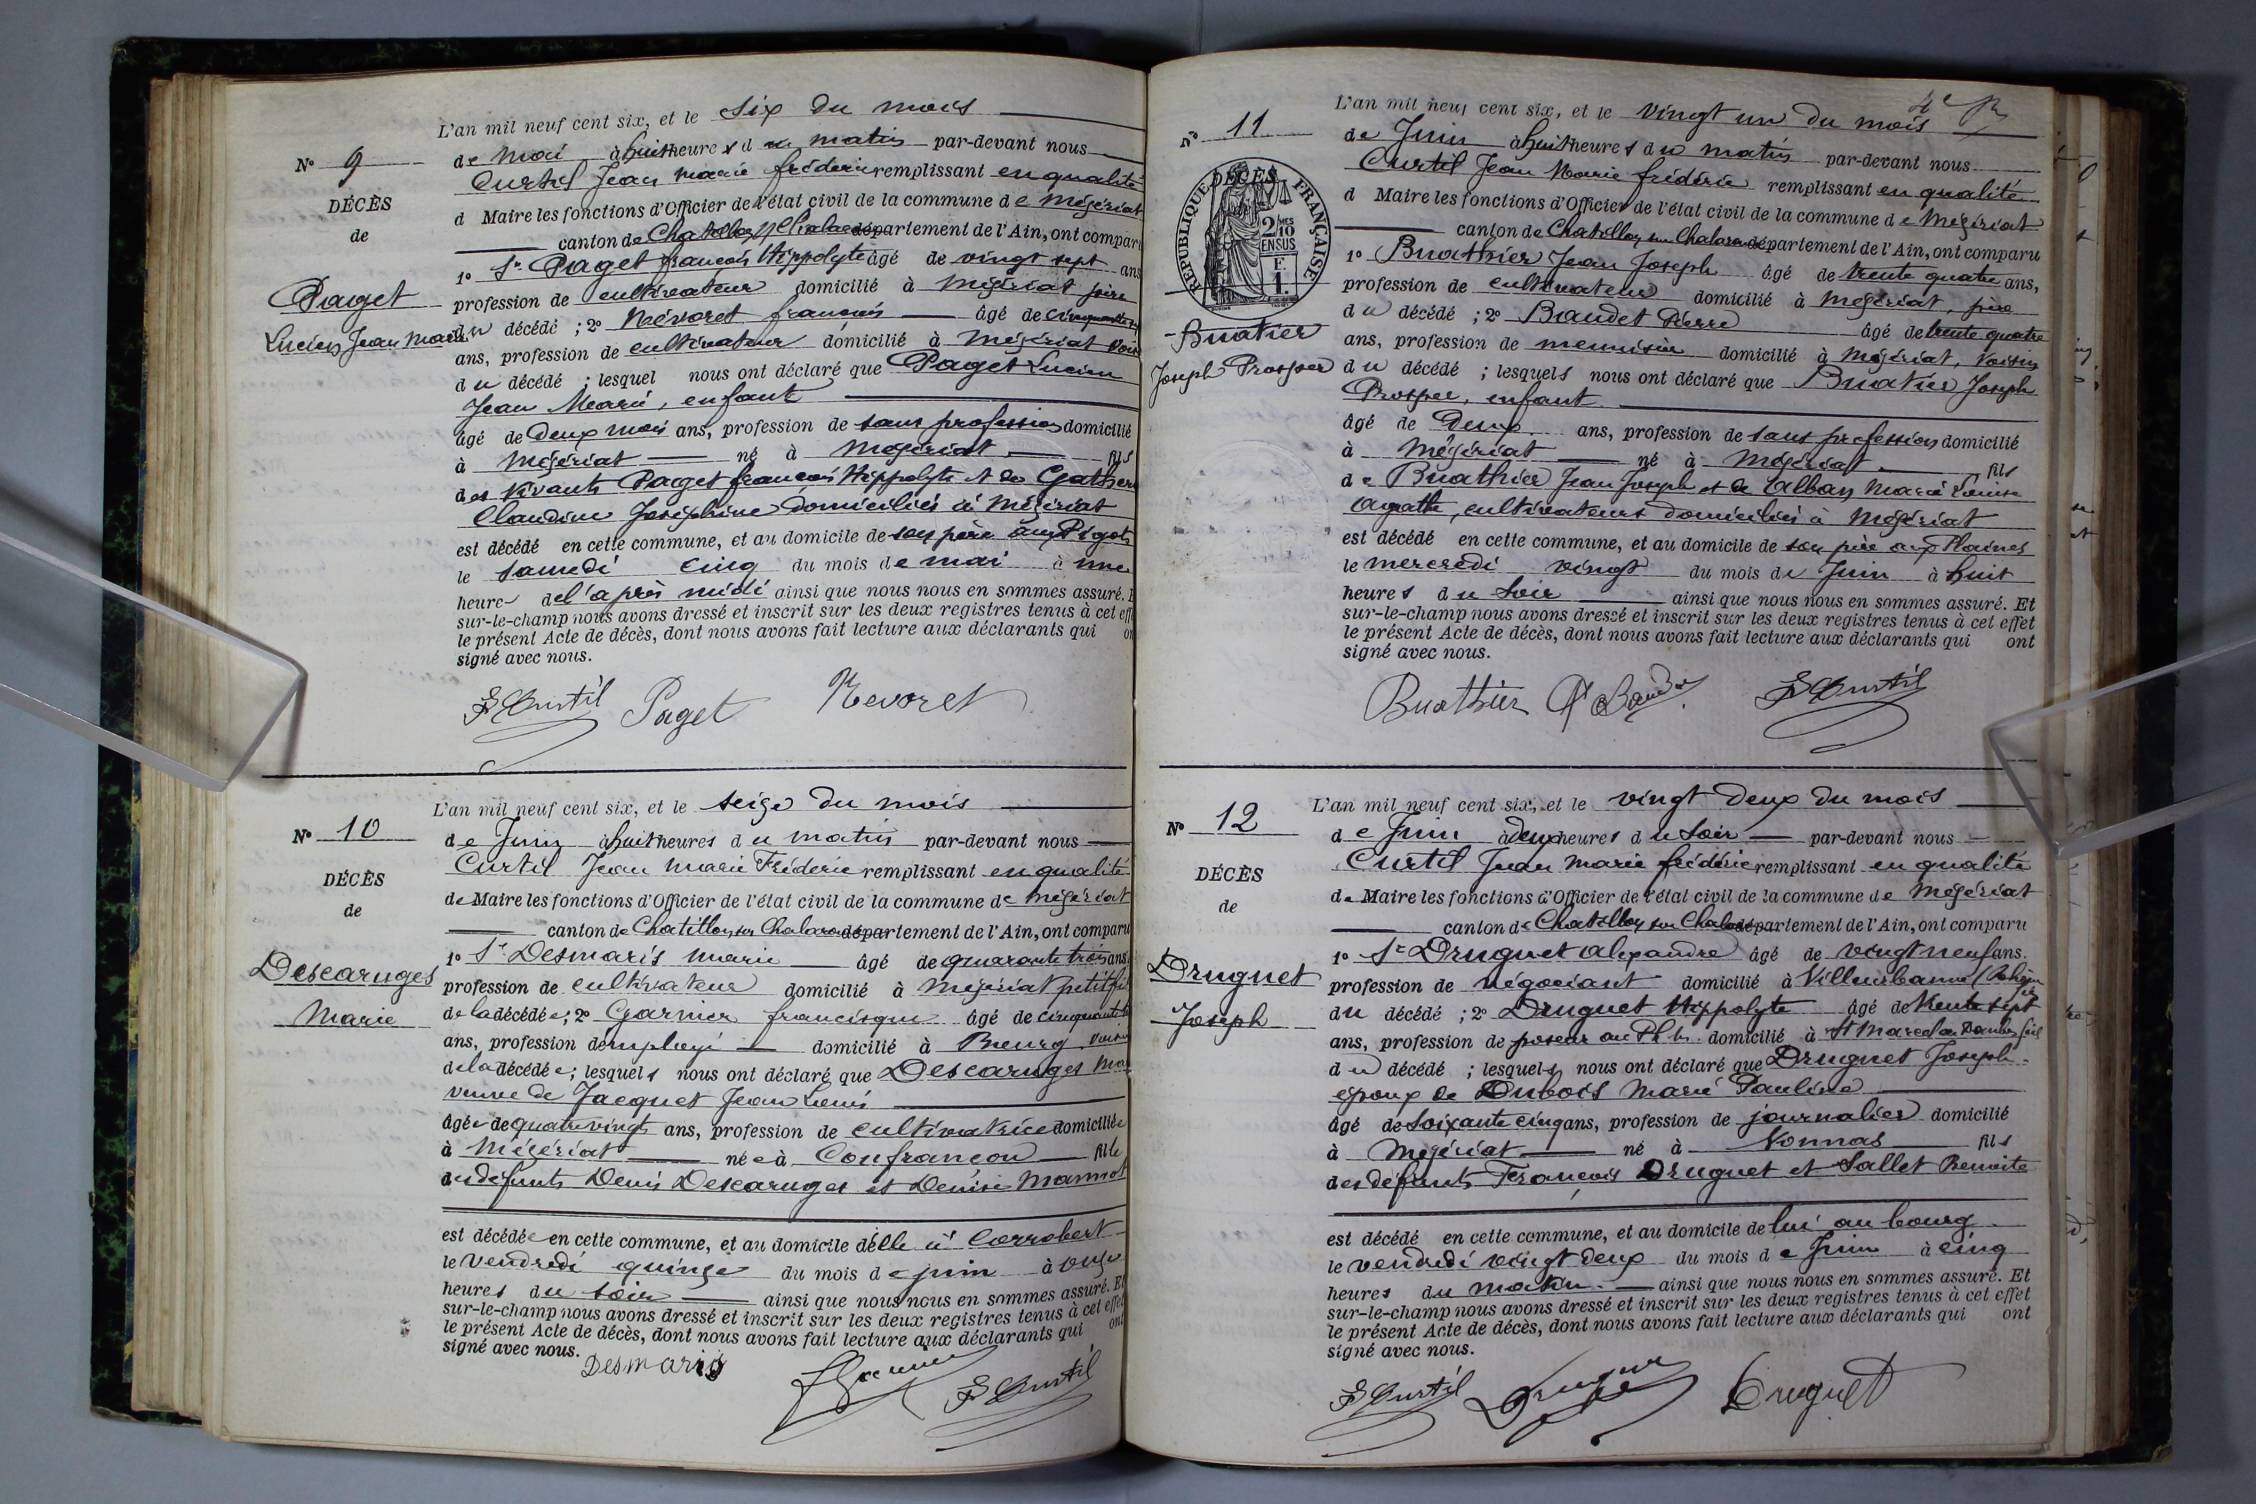 L'an mil neuf cent six, et le six du mois
N° 9
de Mai à huit heures du matin par-devant nous
Curtil Jean Marie frédéric remplissant en qualité
DÉCÈS
d Maire les fonctions d'Officier de l'état civil de la commune de Mézériat
de
canton de Chatillon s/ Chalar département de l'Ain, ont comparu
1° Sr Paget françois Hippolyte âgé de vingt sept ans
Paget
profession de cultivateur domicilié à Mézériat père
Lucien Jean Marie
du décédé ; 2° Névoret françois âgé de
ans, profession de cultivateur domicilié à Mézériat
du décédé ; lesquel nous ont déclaré que Paget Lucien
Jean Marie, enfant
âgé de deux mois ans, profession de sans profession domicilié
à Mézériat né à Mézériat fils
des vivants Paget françois Hippolyte et de
Claudine Joséphine domiciliés à Mézériat
est décédé en cette commune, et au domicile de son père aux
le samedi cinq du mois de mai à une
heure de l'après midi ainsi que nous nous en sommes assuré. E
sur-le-champ nous avons dressé et inscrit sur les deux registres tenus à cet eff
le présent Acte de décès, dont nous avons fait lecture aux déclarants qui on
signé avec nous.
F Curtil Paget Nevoret
L'an mil neuf cent six, et le seize du mois
N° 10
de Juin à huit heures du matin par-devant nous
Curtil Jean Marie Frédéric remplissant en qualité
DÉCÈS
de Maire les fonctions d'Officier de l'état civil de la commune de Mézériat
de
canton de Chatillon sur Chalar département de l'Ain, ont comparu
1° Sr Desmaris Marie âgé de quarante trois ans
Descaruges
profession de cultivateur domicilié à Mézériat petit fils
Marie
de la décédée ; 2° Garnier francisque âgé de
ans, profession d'employé domicilié à Bourg voisin
de la décédée ; lesquels nous ont déclaré que Descaruges Ma
veuve de Jacquet Jean Louis
âgée de quatre vingt ans, profession de cultivatrice domiciliée
à Mézériat née à Confrançon fille
des défunts Denis Descaruges et Denise Marmot
est décédée en cette commune, et au domicile d'elle à Corrobert
le vendredi quinze du mois de juin à onze
heures du soir ainsi que nous nous en sommes assuré. Et
sur-le-champ nous avons dressé et inscrit sur les deux registres tenus à cet effet
le présent Acte de décès, dont nous avons fait lecture aux déclarants qui ont
signé avec nous.
Desmaris F Curtil
4e
L'an mil neuf cent six, et le vingt un du mois
N° 11
de Juin à huit heures du matin par-devant nous
Curtil Jean Marie frédéric remplissant en qualité
RÉPUBLIQUE FRANÇAISE
DÉCÈS
2/10 EN SUS
F. 1.
d Maire les fonctions d'Officier de l'état civil de la commune de Mézériat
canton de Chatillon sur Chalar département de l'Ain, ont comparu
1° Buathier Jean Joseph âgé de trente quatre ans,
profession de cultivateur domicilié à Mézériat, père
Buatier
Joseph Prosper
du décédé ; 2° Baudet Pierre âgé de trente quatre
ans, profession de menuisier domicilié à Mézériat, voisin
du décédé ; lesquels nous ont déclaré que Buatier Joseph
Prosper, enfant
âgé de Deux ans, profession de sans profession domicilié
à Mézériat né à Mézériat fils
de Buathier Jean Joseph et de Talbay Marie Louise
Agathe, cultivateurs domiciliés à Mézériat
est décédé en cette commune, et au domicile de son père aux Plaines
le mercredi vingt du mois de Juin à huit
heures du soir ainsi que nous nous en sommes assuré. Et
sur-le-champ nous avons dressé et inscrit sur les deux registres tenus à cet effet
le présent Acte de décès, dont nous avons fait lecture aux déclarants qui ont
signé avec nous.
Buathier F Curtil
L'an mil neuf cent six, et le vingt deux du mois
N° 12
de Juin à deux heures du soir par-devant nous
Curtil Jean Marie frédéric remplissant en qualité
DÉCÈS
de Maire les fonctions d'Officier de l'état civil de la commune de Mézériat
de
canton de Chatillon sur Chalar département de l'Ain, ont comparu
1° Sr Druguet Alexandre âgé de vingt neuf ans.
Druguet
profession de négociant domicilié à Villeurbanne (Rhône
Joseph
du décédé ; 2° Druguet Hippolyte âgé de trente sept
ans, profession de poseur au domicilié à St Marcel fils
du décédé ; lesquels nous ont déclaré que Druguet Joseph
époux de Dubois Marie Pauline
âgé de soixante cinq ans, profession de journalier domicilié
à Mézériat né à Vonnas fils
des défunts François Druguet et Sallet Benoite
est décédé en cette commune, et au domicile de lui au bourg
le vendredi vingt deux du mois de Juin à cinq
heures du matin ainsi que nous nous en sommes assuré. Et
sur-le-champ nous avons dressé et inscrit sur les deux registres tenus à cet effet
le présent Acte de décès, dont nous avons fait lecture aux déclarants qui ont
signé avec nous.
F Curtil Druguet